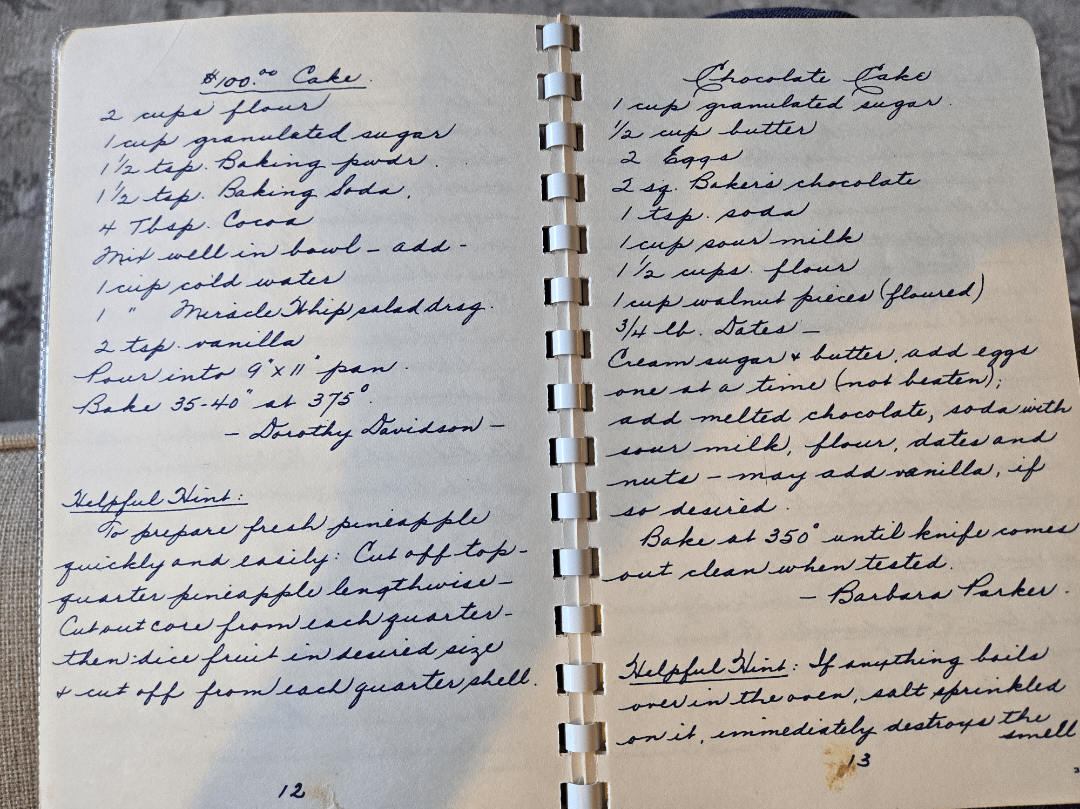 $100.00 Cake.
2 cups flour
1 cup granulated sugar
1 1/2 tsp. Baking pwdr.
1 1/2 tsp. Baking Soda.
4 Tbsp. Cocoa
Mix well in bowl – add –
1 cup cold water
1 " Miracle Whip salad drsg.
2 tsp. vanilla
Pour into 9" x 11" pan.
Bake 35-40" at 375°.
– Dorothy Davidson –
Helpful Hint:
To prepare fresh pineapple
quickly and easily: Cut off top –
quarter pineapple lengthwise –
Cut out core from each quarter –
then dice fruit in desired size
& cut off from each quarter shell.
12
Chocolate Cake
1 cup granulated sugar.
1/2 cup butter
2 Eggs
2 sq. Baker's chocolate
1 tsp. soda
1 cup sour milk
1 1/2 cups. flour
1 cup walnut pieces (floured)
3/4 lb. Dates –
Cream sugar & butter, add eggs
one at a time (not beaten);
add melted chocolate, soda with
sour milk, flour, dates and
nuts – may add vanilla, if
so desired.
Bake at 350° until knife comes
out clean when tested.
– Barbara Parker.
Helpful Hint: If anything boils
over in the oven, salt sprinkled
on it, immediately destroys the
smell
13